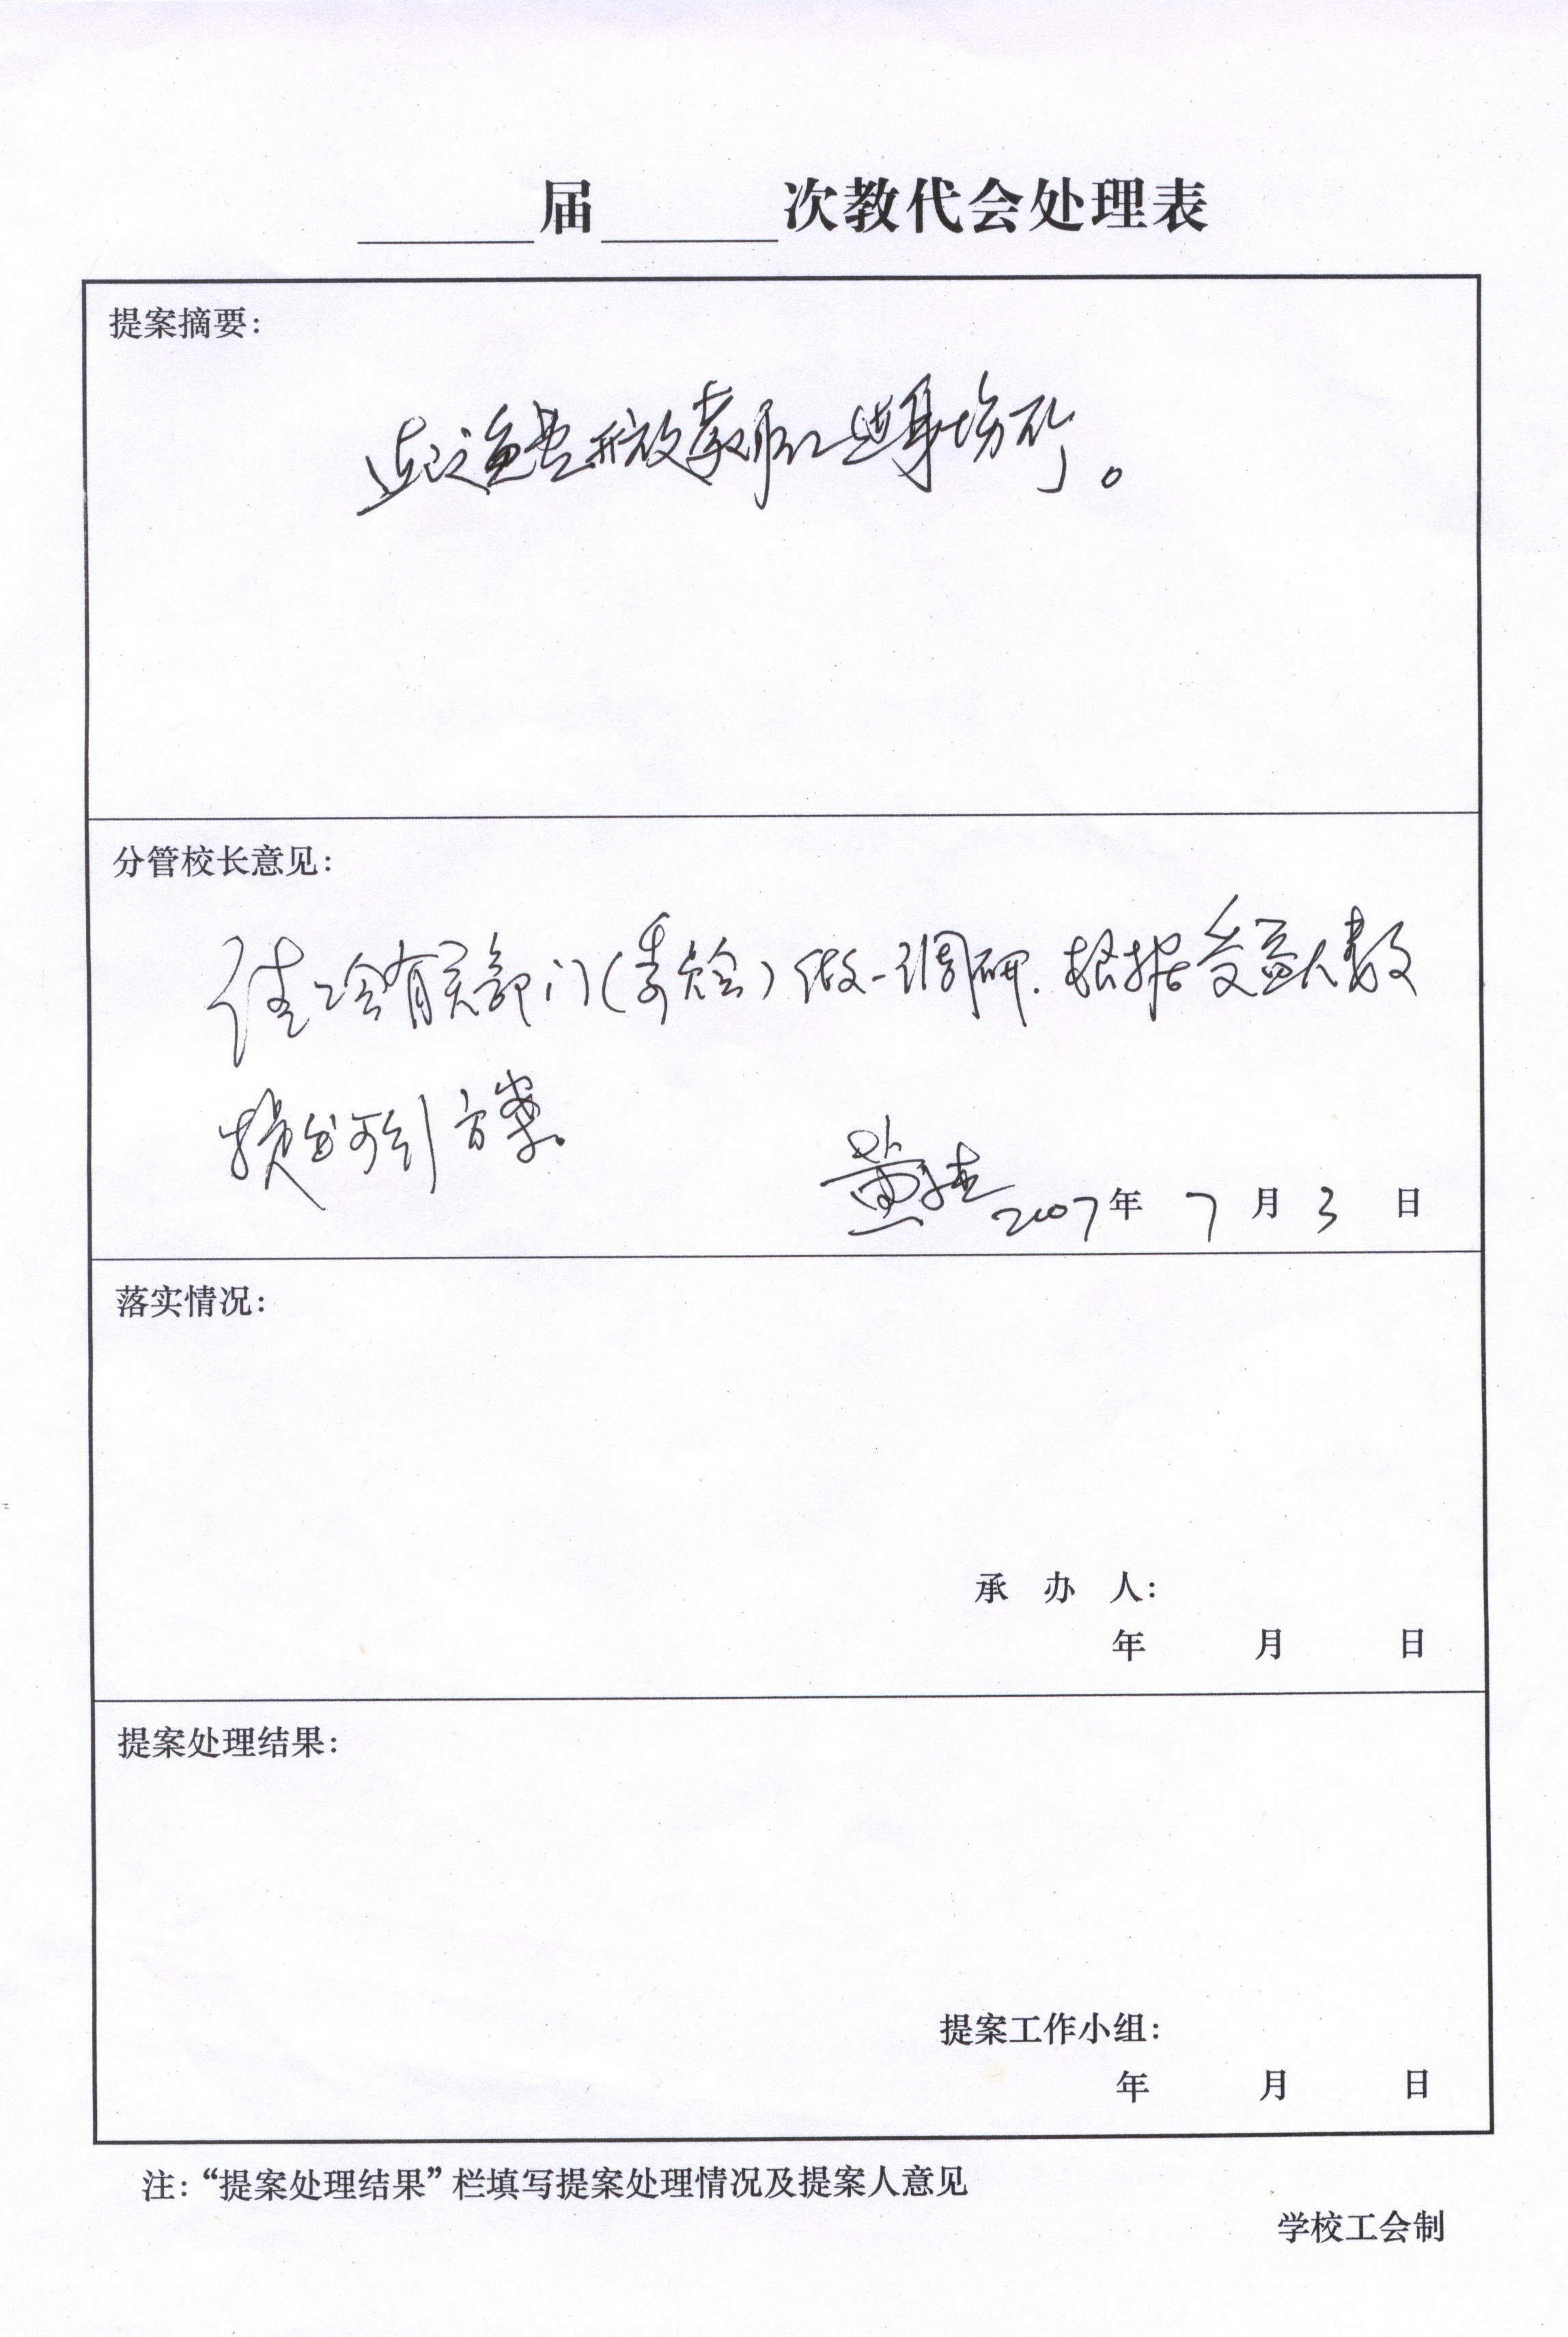 届 次教代会处理表
提案摘要：
建议免费开放教职工健身场所。
分管校长意见：
请工会有关部门（委员会）做一调研．根据受益人数
提出可行方案。
2007年 7月 3日
落实情况：
承 办 人：
年 月 日
提案处理结果：
提案工作小组：
年 月 日
注：“提案处理结果”栏填写提案处理情况及提案人意见
学校工会制